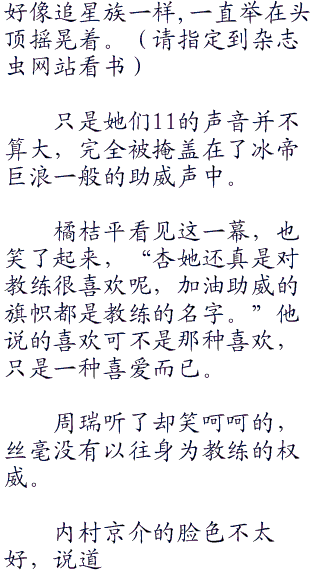 好像追星族一样,一直举在头
顶摇晃着。（请指定到杂志
虫网站看书）
只是她们11的声音并不
算大，完全被掩盖在了冰帝
巨浪一般的助威声中。
橘桔平看见这一幕，也
笑了起来，“杏她还真是对
教练很喜欢呢，加油助威的
旗帜都是教练的名字。”他
说的喜欢可不是那种喜欢，
只是一种喜爱而已。
周瑞听了却笑呵呵的，
丝毫没有以往身为教练的权
威。
内村京介的脸色不太
好，说道